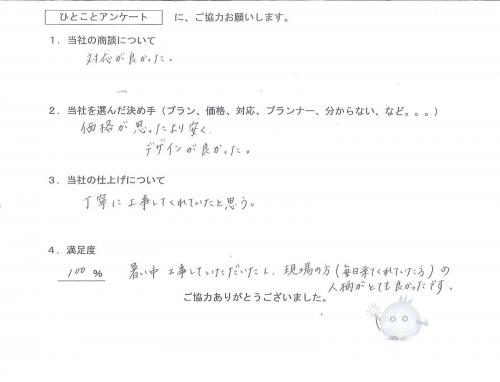 ひとことアンケート に、ご協力お願いします。
1．当社の商談について
対応が良かった。
2．当社を選んだ決め手（プラン、価格、対応、プランナー、分からない、など。。。）
価格が思ったより安く、
デザインが良かった。
3．当社の仕上げについて
丁寧に工事してくれていたと思う。
4．満足度
100 % 暑い中 工事していただいたし、現場の方（毎日来てくれていた方）の
人柄がとても良かったです。
ご協力ありがとうございました。